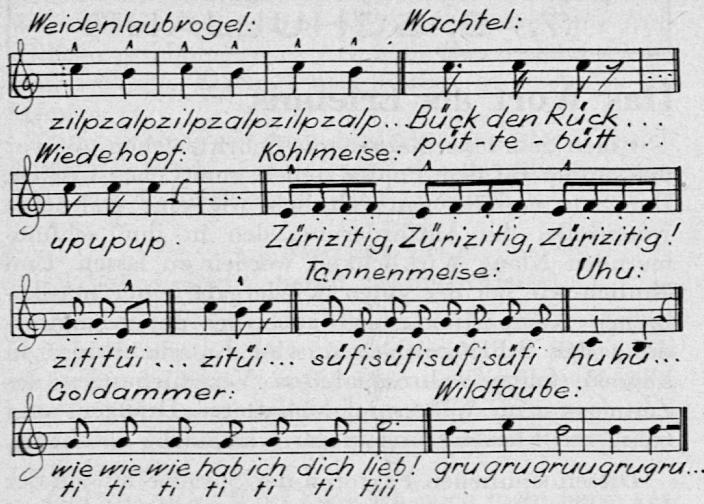 Weidenlaubvogel: Wachtel:
zilpzalpzilpzalpzilpzalp.. Bück den Rück....
püt-te-bütt
Wiedehopf: Kohlmeise:
upupup. Zürizitig, Zürizitig, Zürizitig!
Tannenmeise: Uhu:
zititüi... zitüi... süfisüfisüfisüfi huhu
Goldammer: Wildtaube:
wie wie wie hab ich dich lieb! gru gru gruugrugru...
ti ti ti ti ti ti tiii